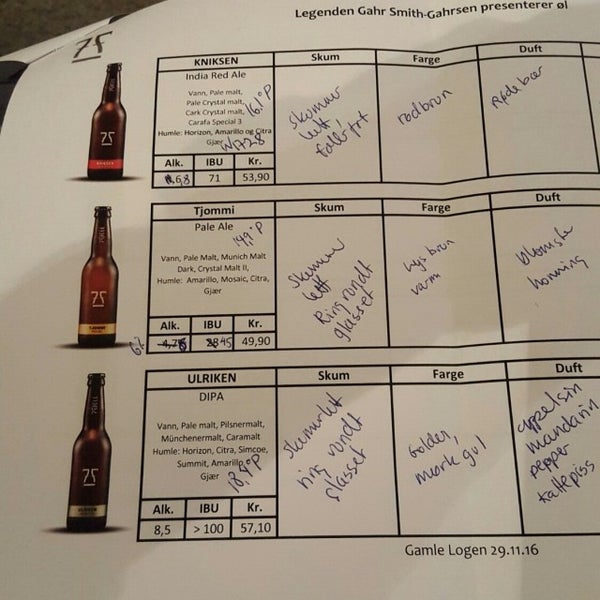 Legenden Gahr Smith-Gahrsen presenterer øl
KNIKSEN
Skum
Farge
Duft
India Red Ale
Vann, Pale malt,
Pale Crystal malt,
Cark Crystal malt,
Carafa Special 3
Humle: Horizon, Amarillo og Citra
Gjær
16,1°P
W1728
skummer
lett,
fort
rødbrun
Røde bær
Alk.
IBU
Kr.
6,8
71
53,90
Tjommi
Skum
Farge
Duft
Pale Ale
Vann, Pale Malt, Munich Malt
Dark, Crystal Malt II,
Humle: Amarillo, Mosaic, Citra,
Gjær
Skummer
lett
Ring rundt
glasset
lys brun
varm
blomster
honning
Alk.
IBU
Kr.
6%
45
49,90
ULRIKEN
Skum
Farge
Duft
DIPA
Vann, Pale malt, Pilsnermalt,
Münchenermalt, Caramalt
Humle: Horizon, Citra, Simcoe,
Summit, Amarillo
Gjær
skummer lett
ring rundt
glasset
Golden,
mørk gul
appelsin
mandarin
pepper
kattepiss
Alk.
IBU
Kr.
8,5
> 100
57,10
Gamle Logen 29.11.16